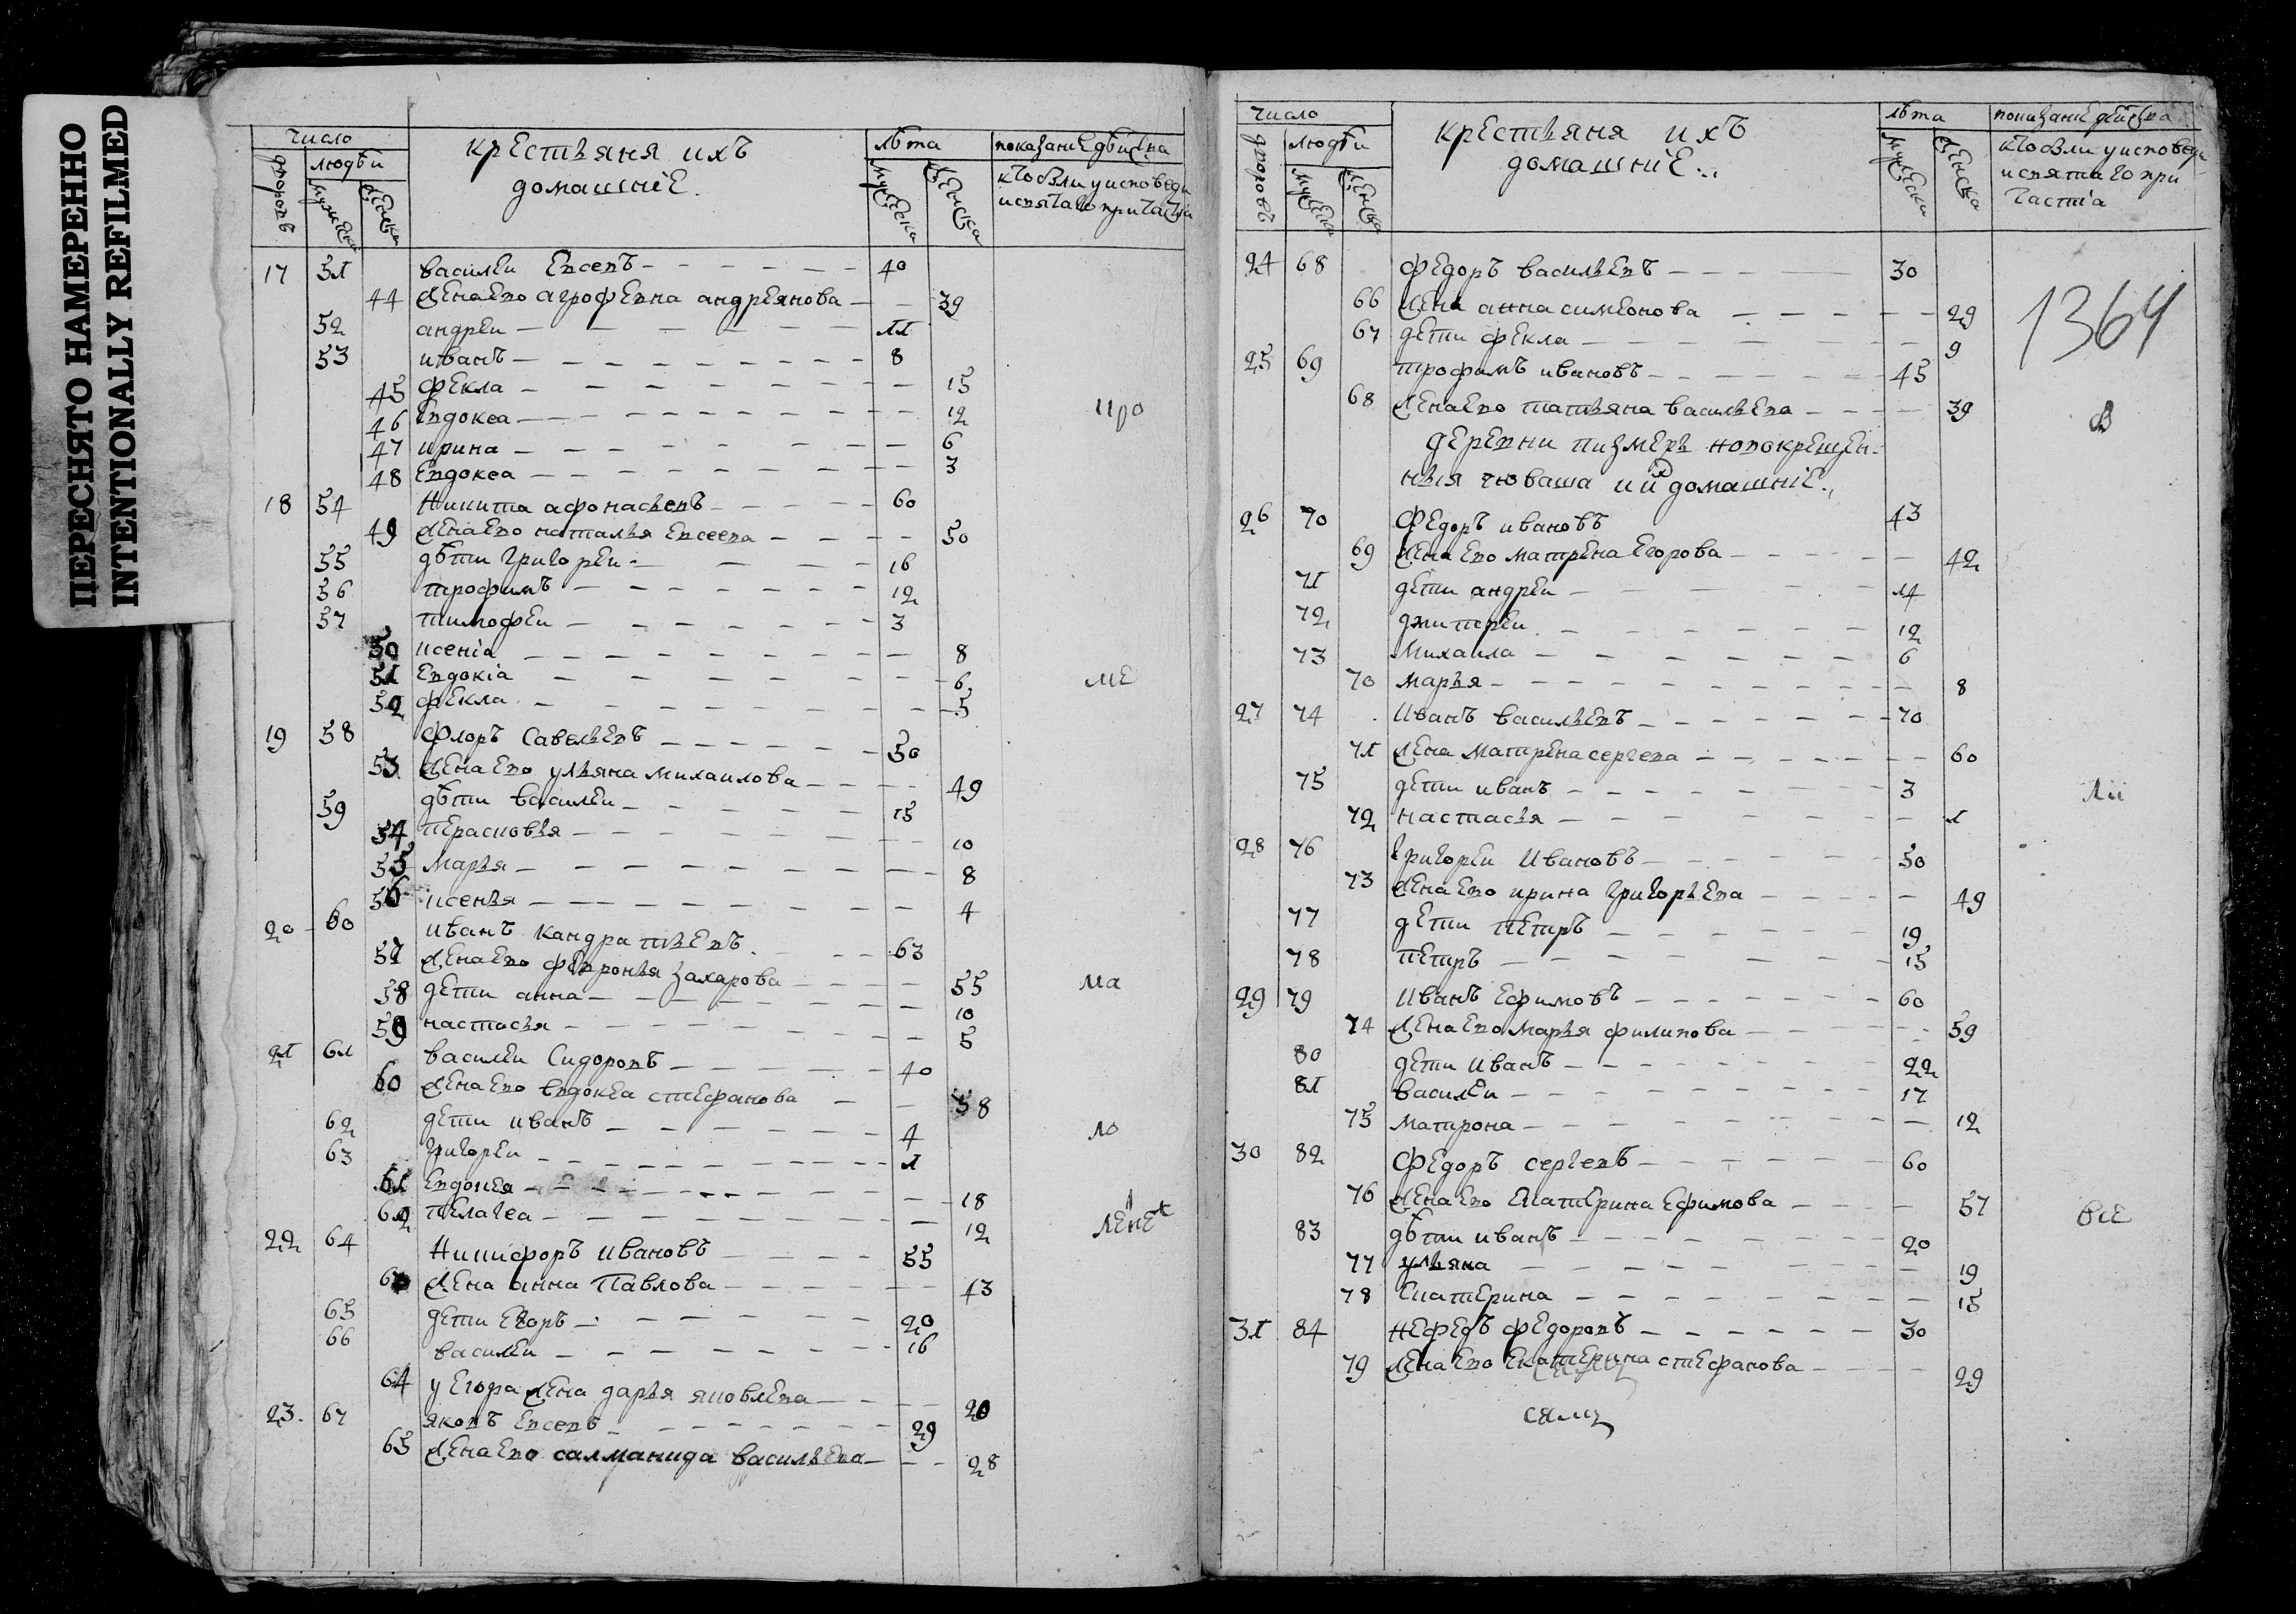 ПЕРЕСНЯТО НАМЕРЕННО
INTENTIONALLY REFILMED
число
дворовъ
людѣи
мужеска
женска
крестьяня ихъ
домашніе
лѣта
мужеска
женска
показание действа
кто был у исповеди
и святаго причастия
17 51 василеи Евсевъ 40
44 жена ево агрофена андреянова 39
52 андреи 11
53 иванъ 8
45 фекла 15
46 Евдокеа 12
про
47 ирина 6
48 Евдокеа 3
18 54 Никита афонасьевъ 60
49 жена ево наталья Евсеева 50
55 дѣти григореи 16
56 трофимъ 12
57 тимофеи 3
50 ксенiа 8
51 Евдокiа 6
ме
52 фекла 5
19 58 флоръ Савельевъ 50
53 жена ево ульяна михаилова 49
59 дѣти василеи 15
54 перасковья 10
55 Марья 8
56 ксенья 4
20 60 иванъ кандратьевъ 63
57 жена ево февронья захарова 55
58 дети анна 10
ка
59 настасья 5
21 61 василеи Сидоровъ 40
60 жена ево евдокеа стефанова 38
62 дети иванъ 4
ло
63 григореи 1
61 Евдокея 18
62 пелагеа 12
22 64 Никифоръ ивановъ 55
63 жена анна Павлова 43
65 дети Егоръ 20
66 василеи 16
64 у Егора жена дарья яковлева 20
23 67 яковъ Евсевъ 29
65 жена ево салманида васильева 28
число
дворовъ
людѣи
мужеска
женска
крестьяня ихъ
домашніе
лѣта
мужеска
женска
показаніе действа
кто был у исповеди
и святаго при
частіа
24 68 федоръ васильевъ 30
1364
66 жена анна симеонова 29
67 дети фекла 9
25 69 трофимъ ивановъ 45
68 жена ево татьяна васильева 39
деревни пизмеръ новокрещен-
ныя чюваша и их домашніе
26 70 Федоръ ивановъ 43
69 жена ево матрена Егорова 42
71 дети андреи 14
72 дмитреи 12
73 Михаила 6
70 марья 8
27 74 Иванъ васильевъ 70
71 жена матрена сергева 60
75 дети иванъ 3
72 настасья 1
28 76 григореи Ивановъ 50
73 жена ево ирина григорьева 49
77 дети петръ 19
78 петръ 15
29 79 Иванъ Ефимовъ 60
74 жена ево марья филипова 59
80 дети Иванъ 22
81 василеи 17
75 матрона 12
30 82 Федоръ сергевъ 60
76 жена ево Екатерина Ефимова 57
все
83 дѣти иванъ 20
77 ульяна 19
78 Екатерина 15
31 84 Нефедъ федоровъ 30
79 жена ево Екатерина стефанова 29